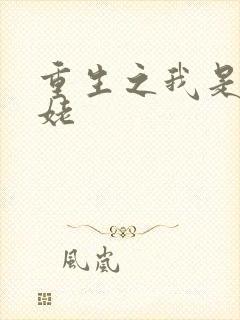 重生之我是
姥
風嵐